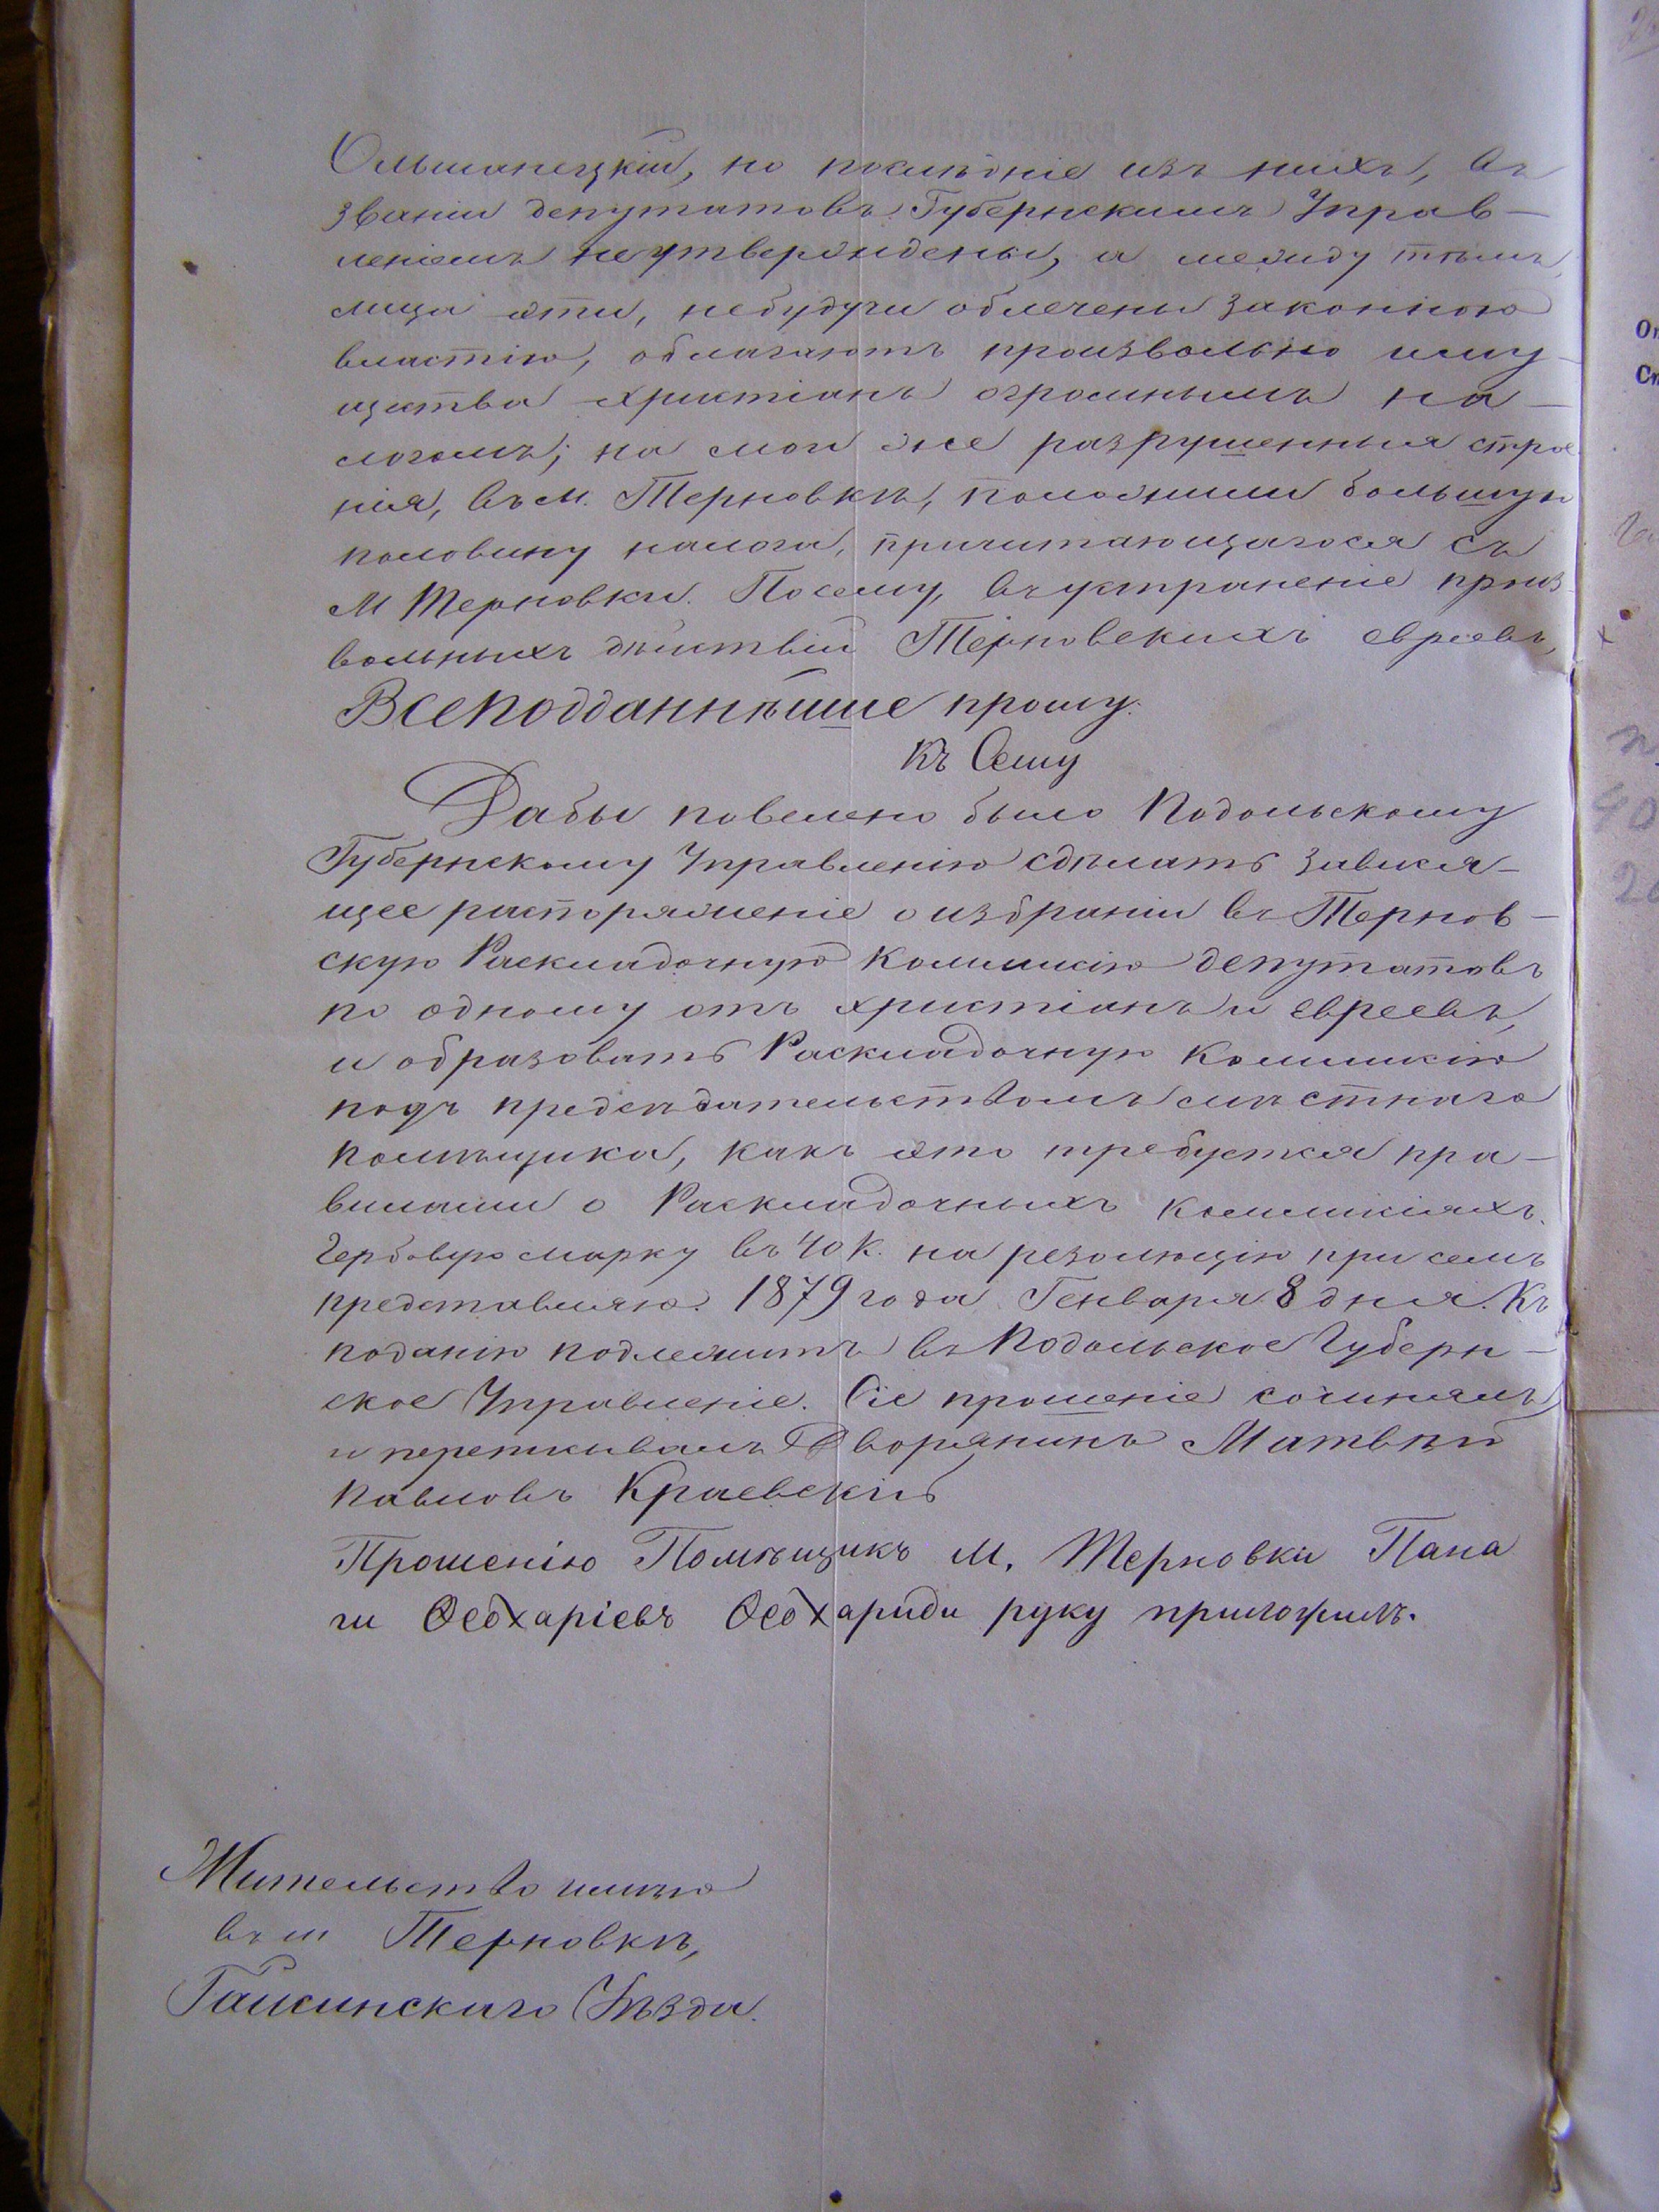 Ольшанецкій, но послѣдніе изъ нихъ, въ
званіи депутатовъ Губернскимъ Управ-
леніемъ неутверждены, а между тѣмъ,
лица эти, небудучи облечены законною
властію, облагаютъ произвольно иму-
щества христіанъ огромнымъ на-
логомъ; на мои же разрушенныя строе
нія, въ м. Терновкѣ, положили большую
половину налога, причитающагося съ
М Терновки. Посему, въ устраненіе произ
вольныхъ дѣйствій Терновскихъ евреевъ,
Всеподданнѣйше прошу:
Къ Сему
Дабы повелено было Подольскому
Губернскому Управленію сдѣлать завися-
щее распоряженіе о избраніи въ Тернов-
скую Раскладочную Коммисію депутатовъ
по одному отъ христіанъ и евреевъ,
и образовать Раскладочную Коммисію
подъ предсѣдательствомъ мѣстнаго
помѣщика, какъ это требуется пра-
вилами о Раскладочныхъ Коммисіяхъ.
Гербовую марку въ 40 к. на резолюцію при семъ
представляю. 1879 года Генваря 8 дня. Къ
поданію подлежитъ въ Подольское Губерн-
ское Управленіе. Сіе прошеніе сочинялъ
и переписывалъ Дворянинъ Матвѣй
Павловъ Краевскій
Прошенію Помѣщикъ М. Терновки Пана
ги Ѳеохаріевъ Ѳеохариди руку приложилъ.
Жительство имѣю
въ м Терновкѣ,
Гайсинскаго Уѣзда.